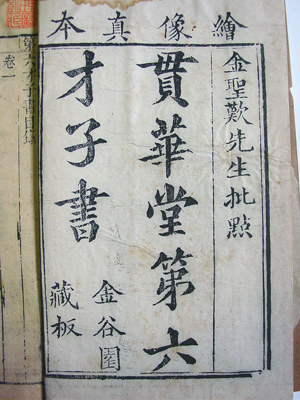 繪像真本
金聖歎先生批點
貫華堂第六
才子書
金谷園
藏板
第六才子書目錄
卷一